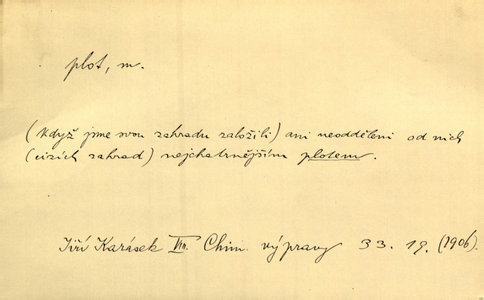 plot, m.
(Když jsme svou zahradu založili) ani neodděleni od nich
(cizích zahrad) nejchatrnějším plotem.
Jiří Karásek Chim. výpravy 33. 19. (1906).